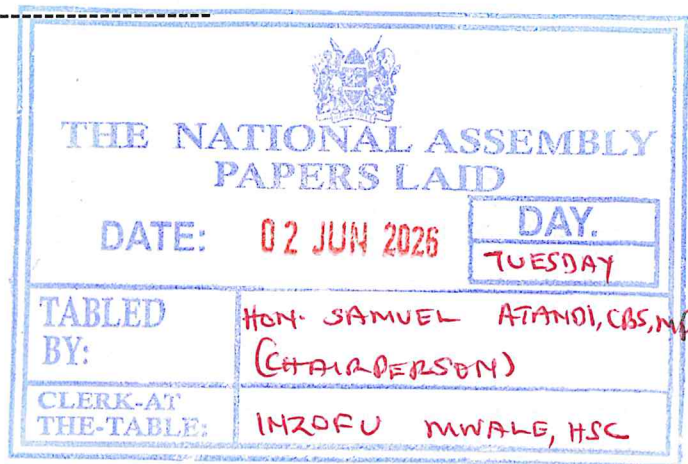 THE NATIONAL ASSEMBLY
PAPERS LAID
DATE: 02 JUN 2026
DAY.
TUESDAY
TABLED BY:
HON. SAMUEL ATANDI, CBS, MP
(CHAIRPERSON)
CLERK-AT THE-TABLE:
INZOFU MWALE, HSC